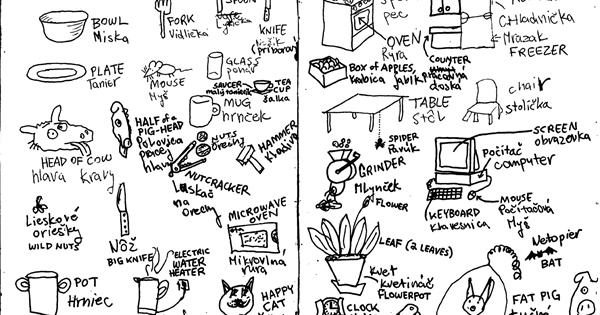 BOWL
Miska
FORK
Vidlička
SPOON
Lyžička
KNIFE
Nožík
(príborový)
PLATE
Tanier
MOUSE
Myš
GLASS
pohár
SAUCER
malý tanierik
TEA
CUP
šálka
MUG
hrnček
HEAD OF COW
hlava kravy
HALF of a
PIG-HEAD
Polovica
prace
hlavy
NUTS
Orechy
HAMMER
Kladivo
NUTCRACKER
Luskáč
na
Orechy
Lieskové
oriešky
WILD NUTS
Nôž
BIG KNIFE
MICROWAVE
OVEN
Mikrovlnná
rúra
POT
Hrniec
ELECTRIC
WATER
HEATER
HAPPY
CAT
pec
OVEN
Rúra
Chladnička
Mrazák
FREEZER
COUNTER
pracovná
doska
BOX of APPLES
Krabica jabĺk
TABLE
Stôl
chair
stolička
SPIDER
Pavúk
SCREEN
obrazovka
Počítač
computer
GRINDER
Mlynček
FLOWER
KEYBOARD
Klávesnica
MOUSE
Počítačová
Myš
LEAF (2 LEAVES)
Kvet
Kvetináč
FLOWERPOT
Netopier
BAT
CLOCK
FAT PIG